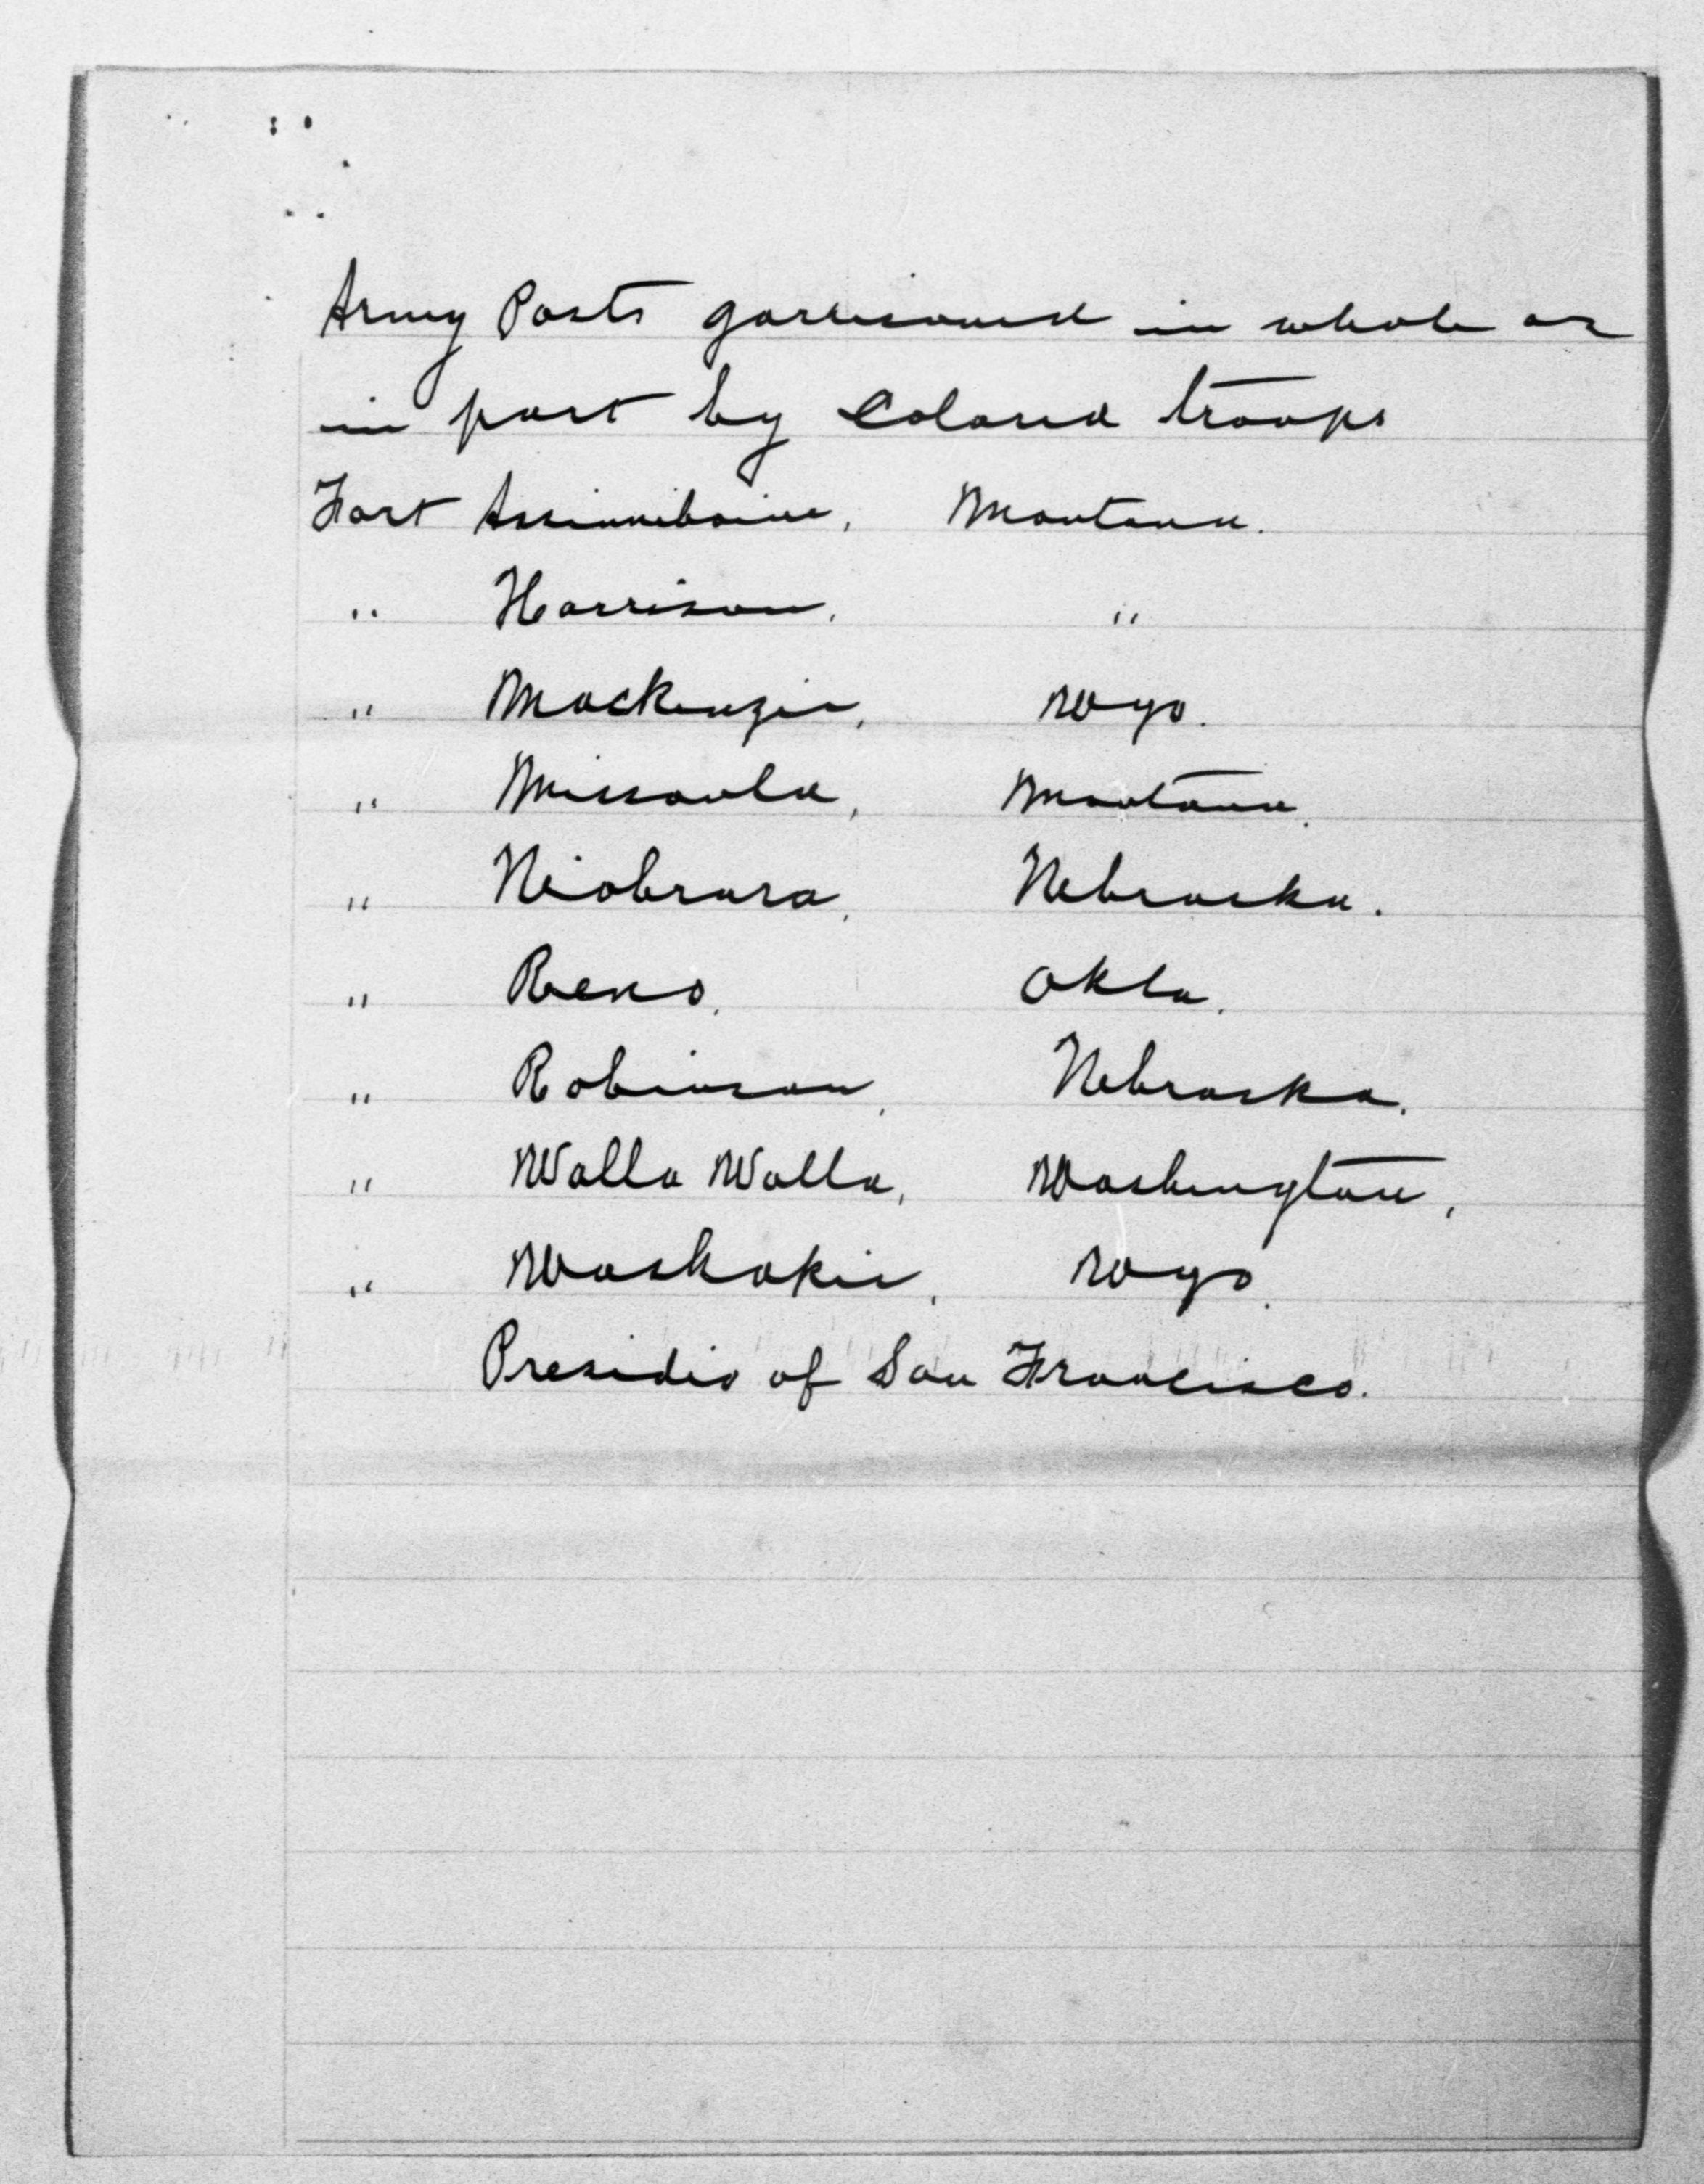 Army Posts garrisoned in whole or
in part by Colored troops
Fort Assinniboine, Montana.
" Harrison, "
" Mackenzie, Wyo.
" Missoula, Montana.
" Niobrara, Nebraska.
" Reno, Okla.
" Robinson, Nebraska.
" Walla Walla, Washington,
" Washakie, Wyo.
Presidio of San Francisco.